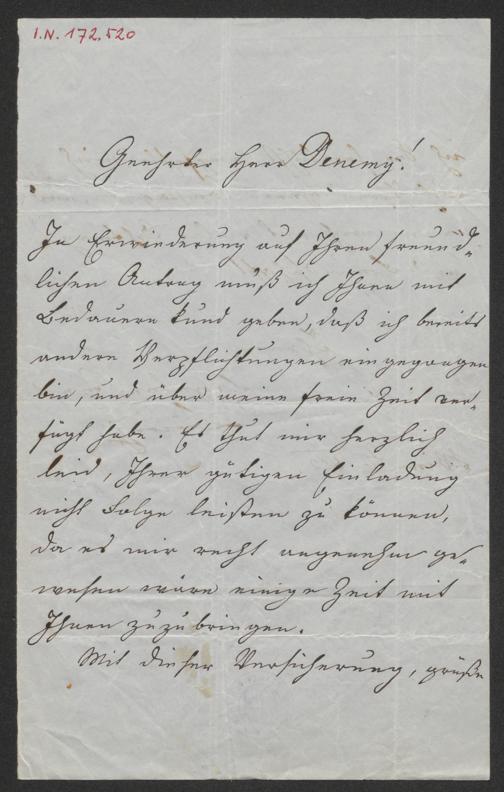 I.N. 172.520
Geehrter Herr Denemy!
In Erwiederung auf Ihren freund-
lichen Antrag muß ich Ihnen mit
Bedauern kund geben, daß ich bereits
andere Verpflichtungen eingegangen
bin, und über meine freie Zeit ver-
fügt habe. Es thut mir herzlich
leid, Ihrer gütigen Einladung
nicht Folge leisten zu können,
da es mir recht angenehm ge-
wesen wäre einige Zeit mit
Ihnen zuzubringen.
Mit dieser Versicherung, grüße